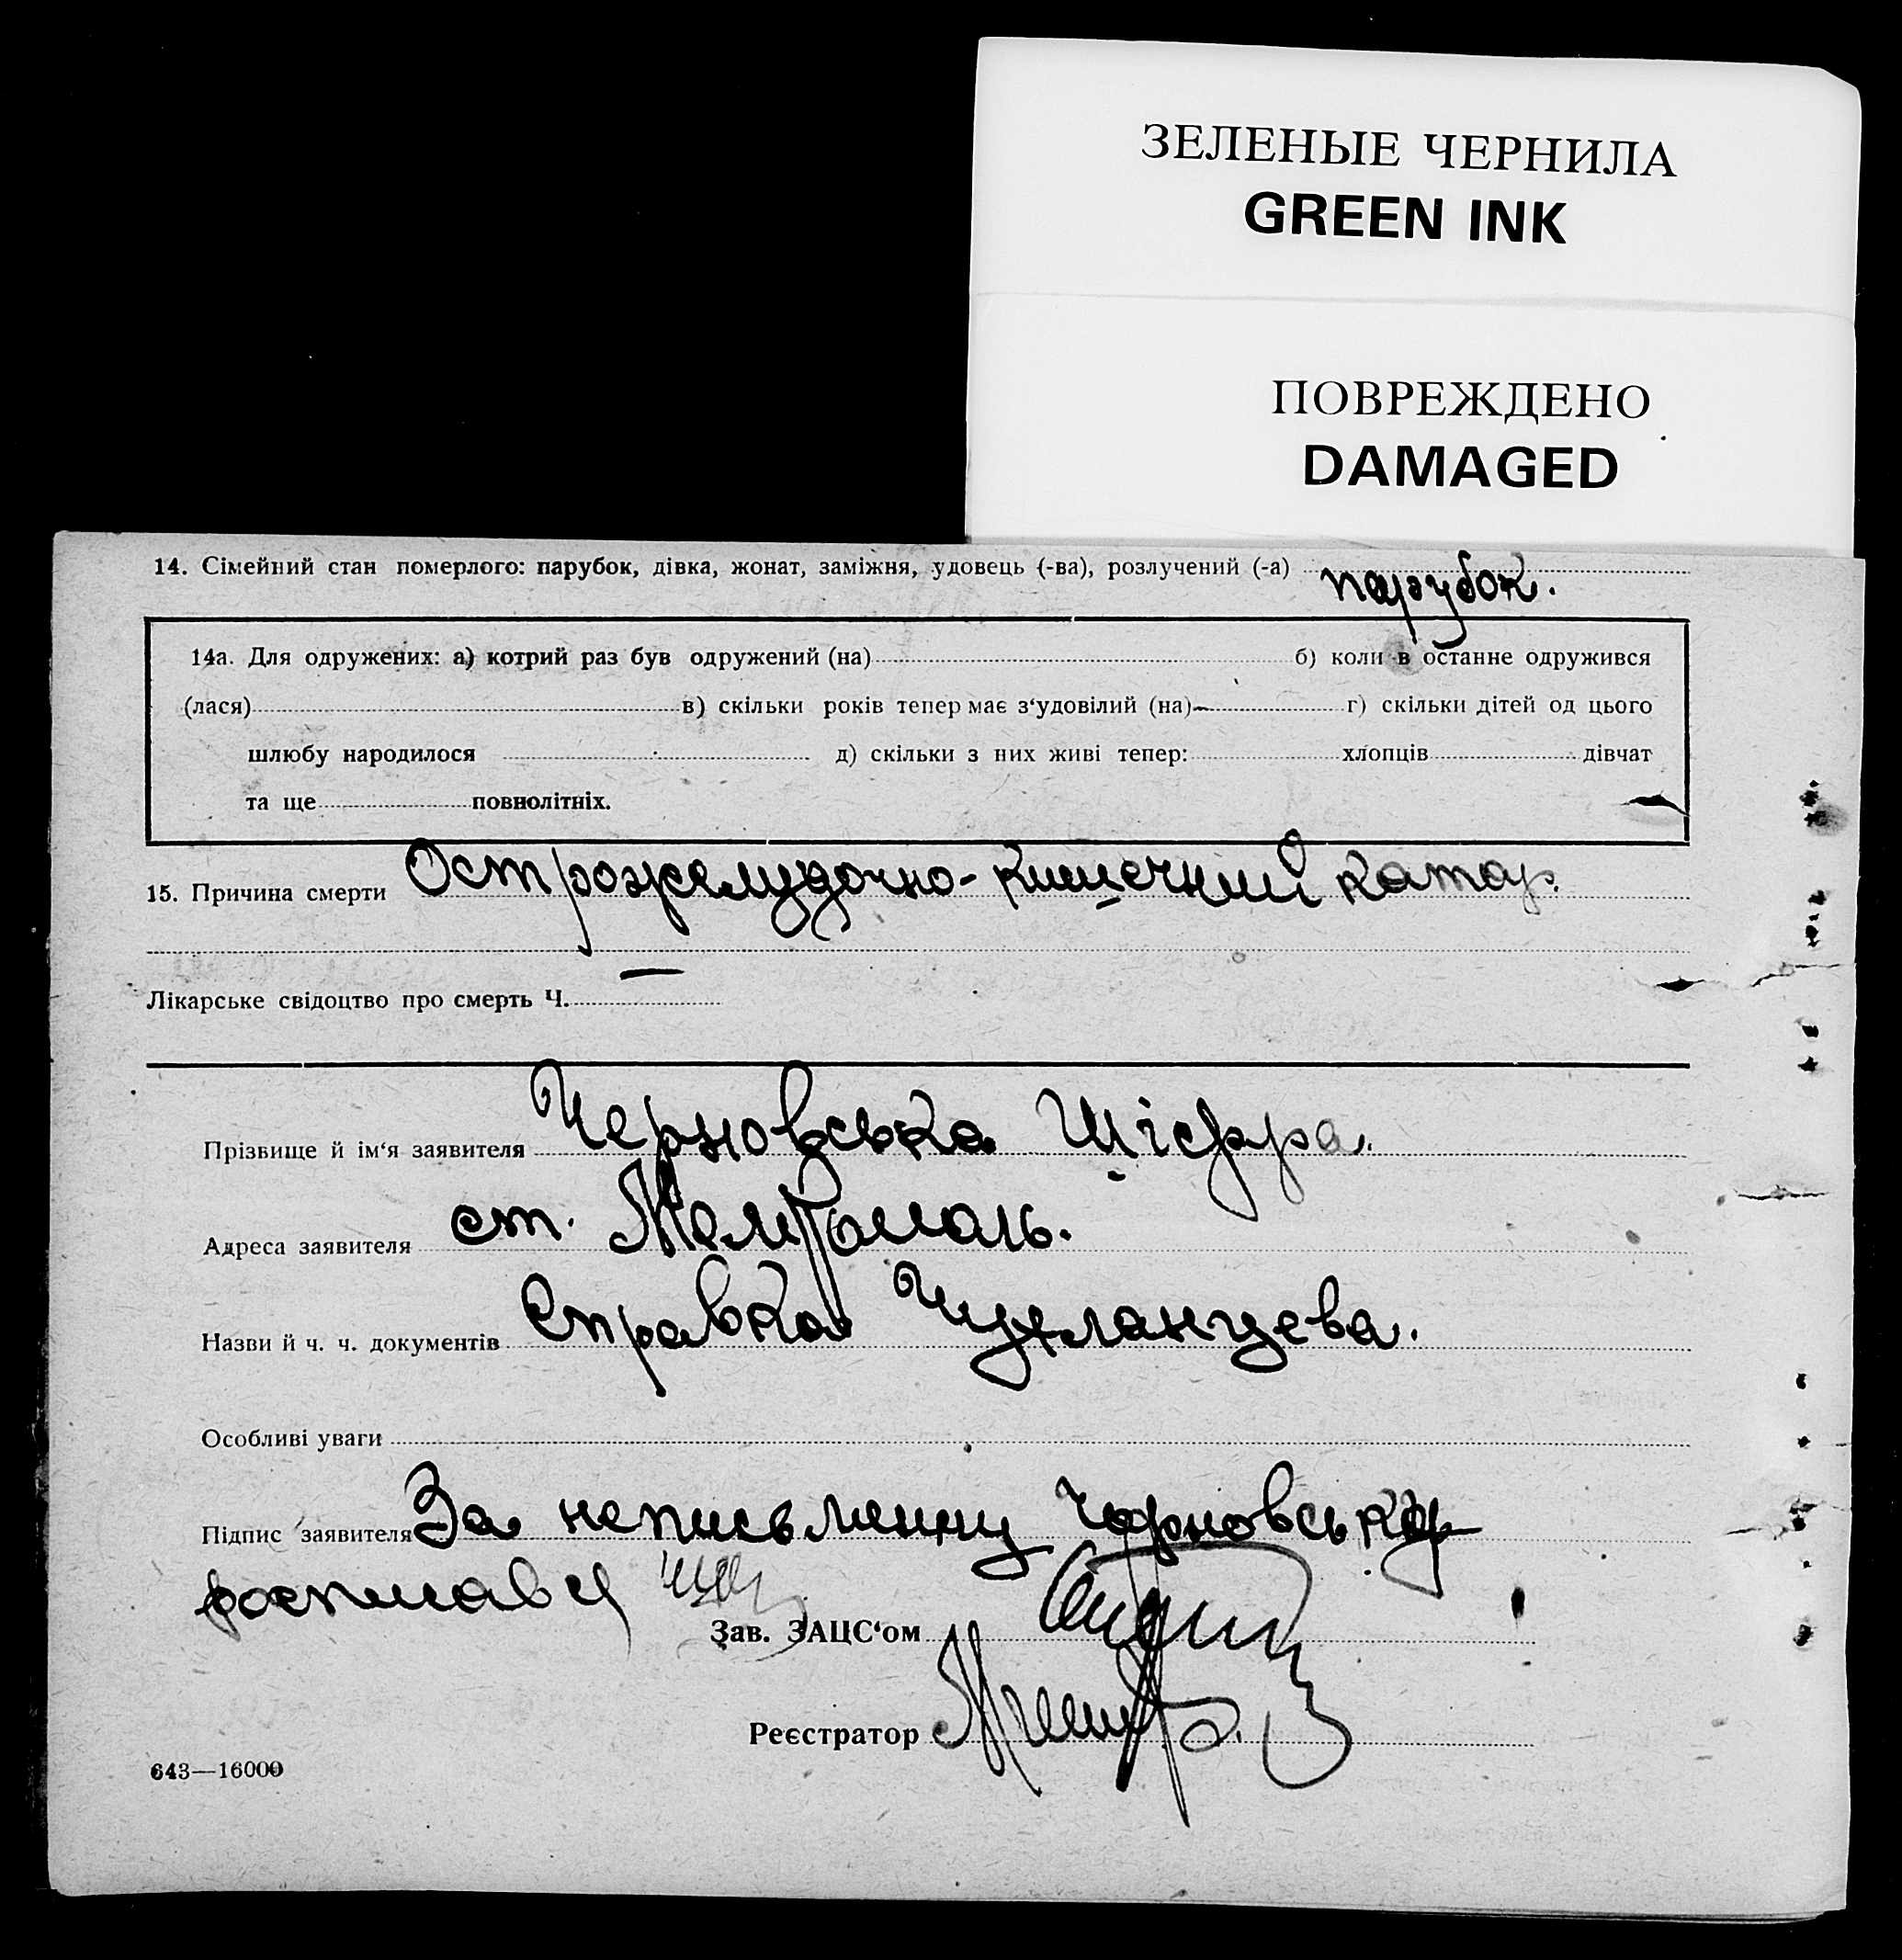 ЗЕЛЕНЫЕ ЧЕРНИЛА
GREEN INK
ПОВРЕЖДЕНО
DAMAGED
14. Сімейний стан померлого: парубок, дівка, жонат, заміжня, удовець (-ва), розлучений (-а) парубок.
14а. Для одружених: а) котрий раз був одружений (на) б) коли в останне одружився
(лася) в) скільки років тепер має з‘удовілий (на) г) скільки дітей од цього
шлюбу народилося д) скільки з них живі тепер: хлопців дівчат
та ще повнолітніх.
15. Причина смерти Острожелудочно-кишечний катар.
Лікарське свідоцтво про смерть Ч. —
Прізвище й ім‘я заявителя Черновська
Адреса заявителя ст.
Назви й ч. ч. документів Справка
Особливі уваги
Підпис заявителя За неписьменну Чорновську
росписався
Зав. ЗАЦС‘ом
Реєстратор
643—16000